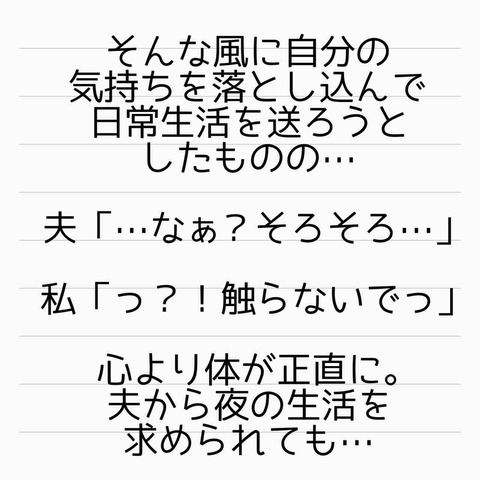 そんな風に自分の
気持ちを落とし込んで
日常生活を送ろうと
したものの…
夫「…なぁ？そろそろ…」
私「っ？！触らないでっ」
心より体が正直に。
夫から夜の生活を
求められても…